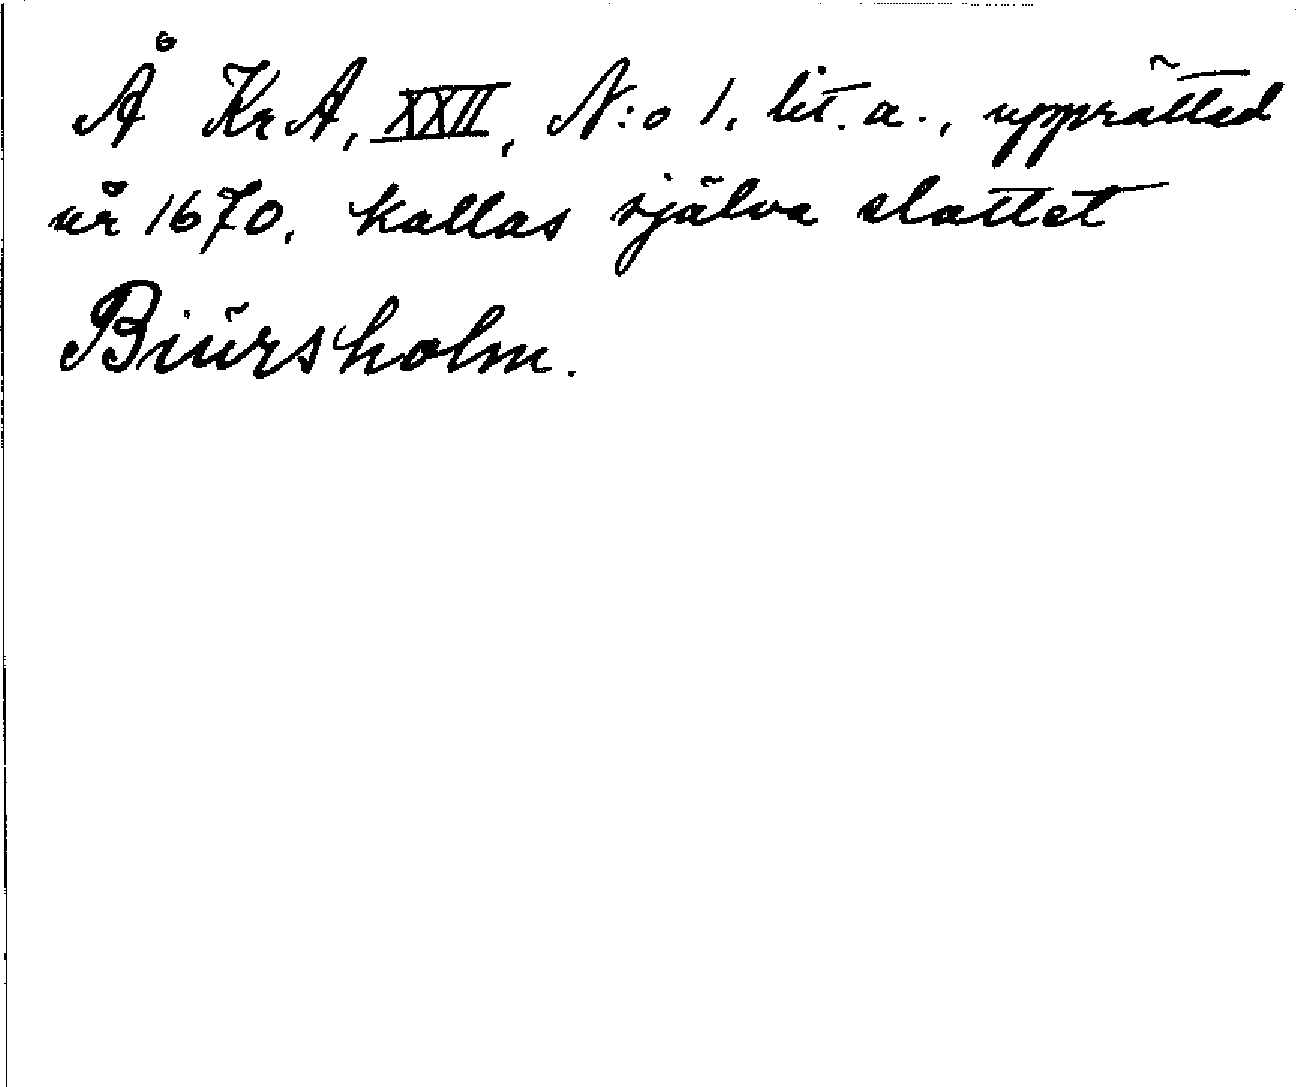 Å KrA, XXII, N:o 1, lit. a., upprättad
år 1670, kallas själva slottet
Biürsholm.